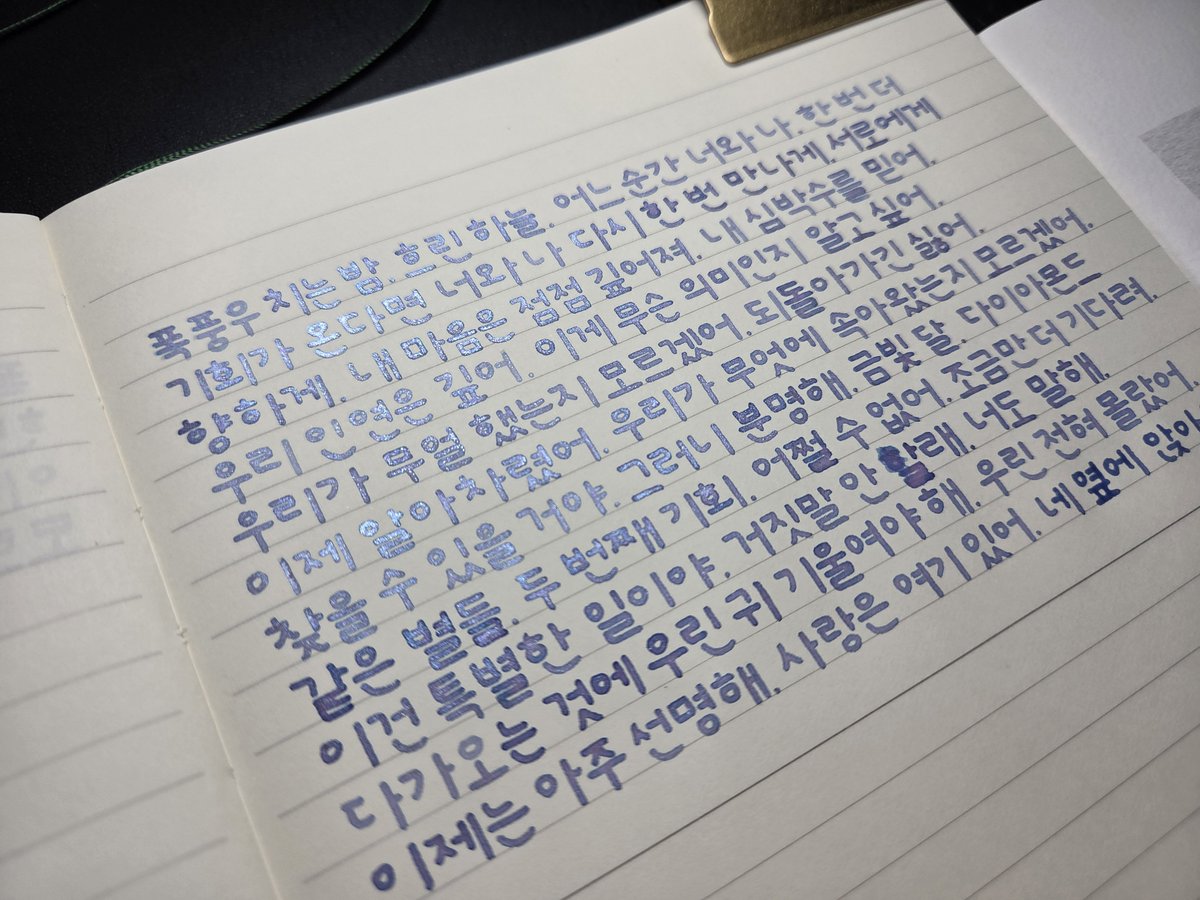 폭풍우 치는 밤. 흐린 하늘. 어느 순간 너와 나. 한 번 더
기회가 온다면 너와 나 다시 한 번 만나게. 서로에게
향하게. 내 마음은 점점 깊어져. 내 심박수를 믿어.
우리 인연은 깊어. 이게 무슨 의미인지 알고 싶어.
우리가 무얼 했는지 모르겠어. 되돌아가긴 싫어.
이제 알아차렸어. 우리가 무엇에 속아왔는지 모르겠어.
찾을 수 있을 거야. 그러니 분명해. 금빛 달. 다이아몬드
같은 별들. 두 번째 기회. 어쩔 수 없어. 조금만 더 기다려.
이건 특별한 일이야. 거짓말 안 할래. 너도 말해.
다가오는 것에 우린 귀 기울여야 해. 우린 전혀 몰랐어.
이제는 아주 선명해. 사랑은 여기 있어. 네 옆에